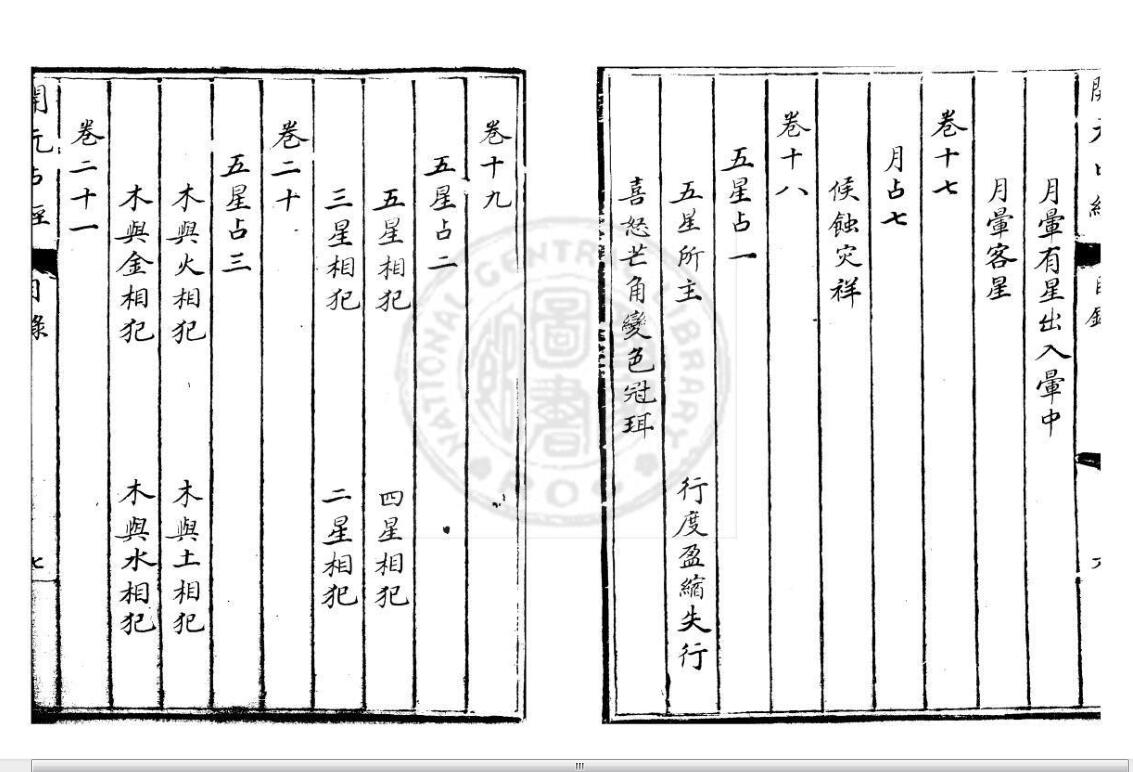 月暈有星出入暈中
月暈客星
卷十七
月占七
候蝕灾祥
卷十八
五星占一
五星所主 行度盈縮失行
喜怒芒角變色冠珥
卷十九
五星占二
五星相犯 四星相犯
三星相犯 二星相犯
卷二十
五星占三
木與火相犯 木與土相犯
木與金相犯 木與水相犯
卷二十一
開元占經 目錄 七
NATIONAL CENTRAL LIBRARY
圖書